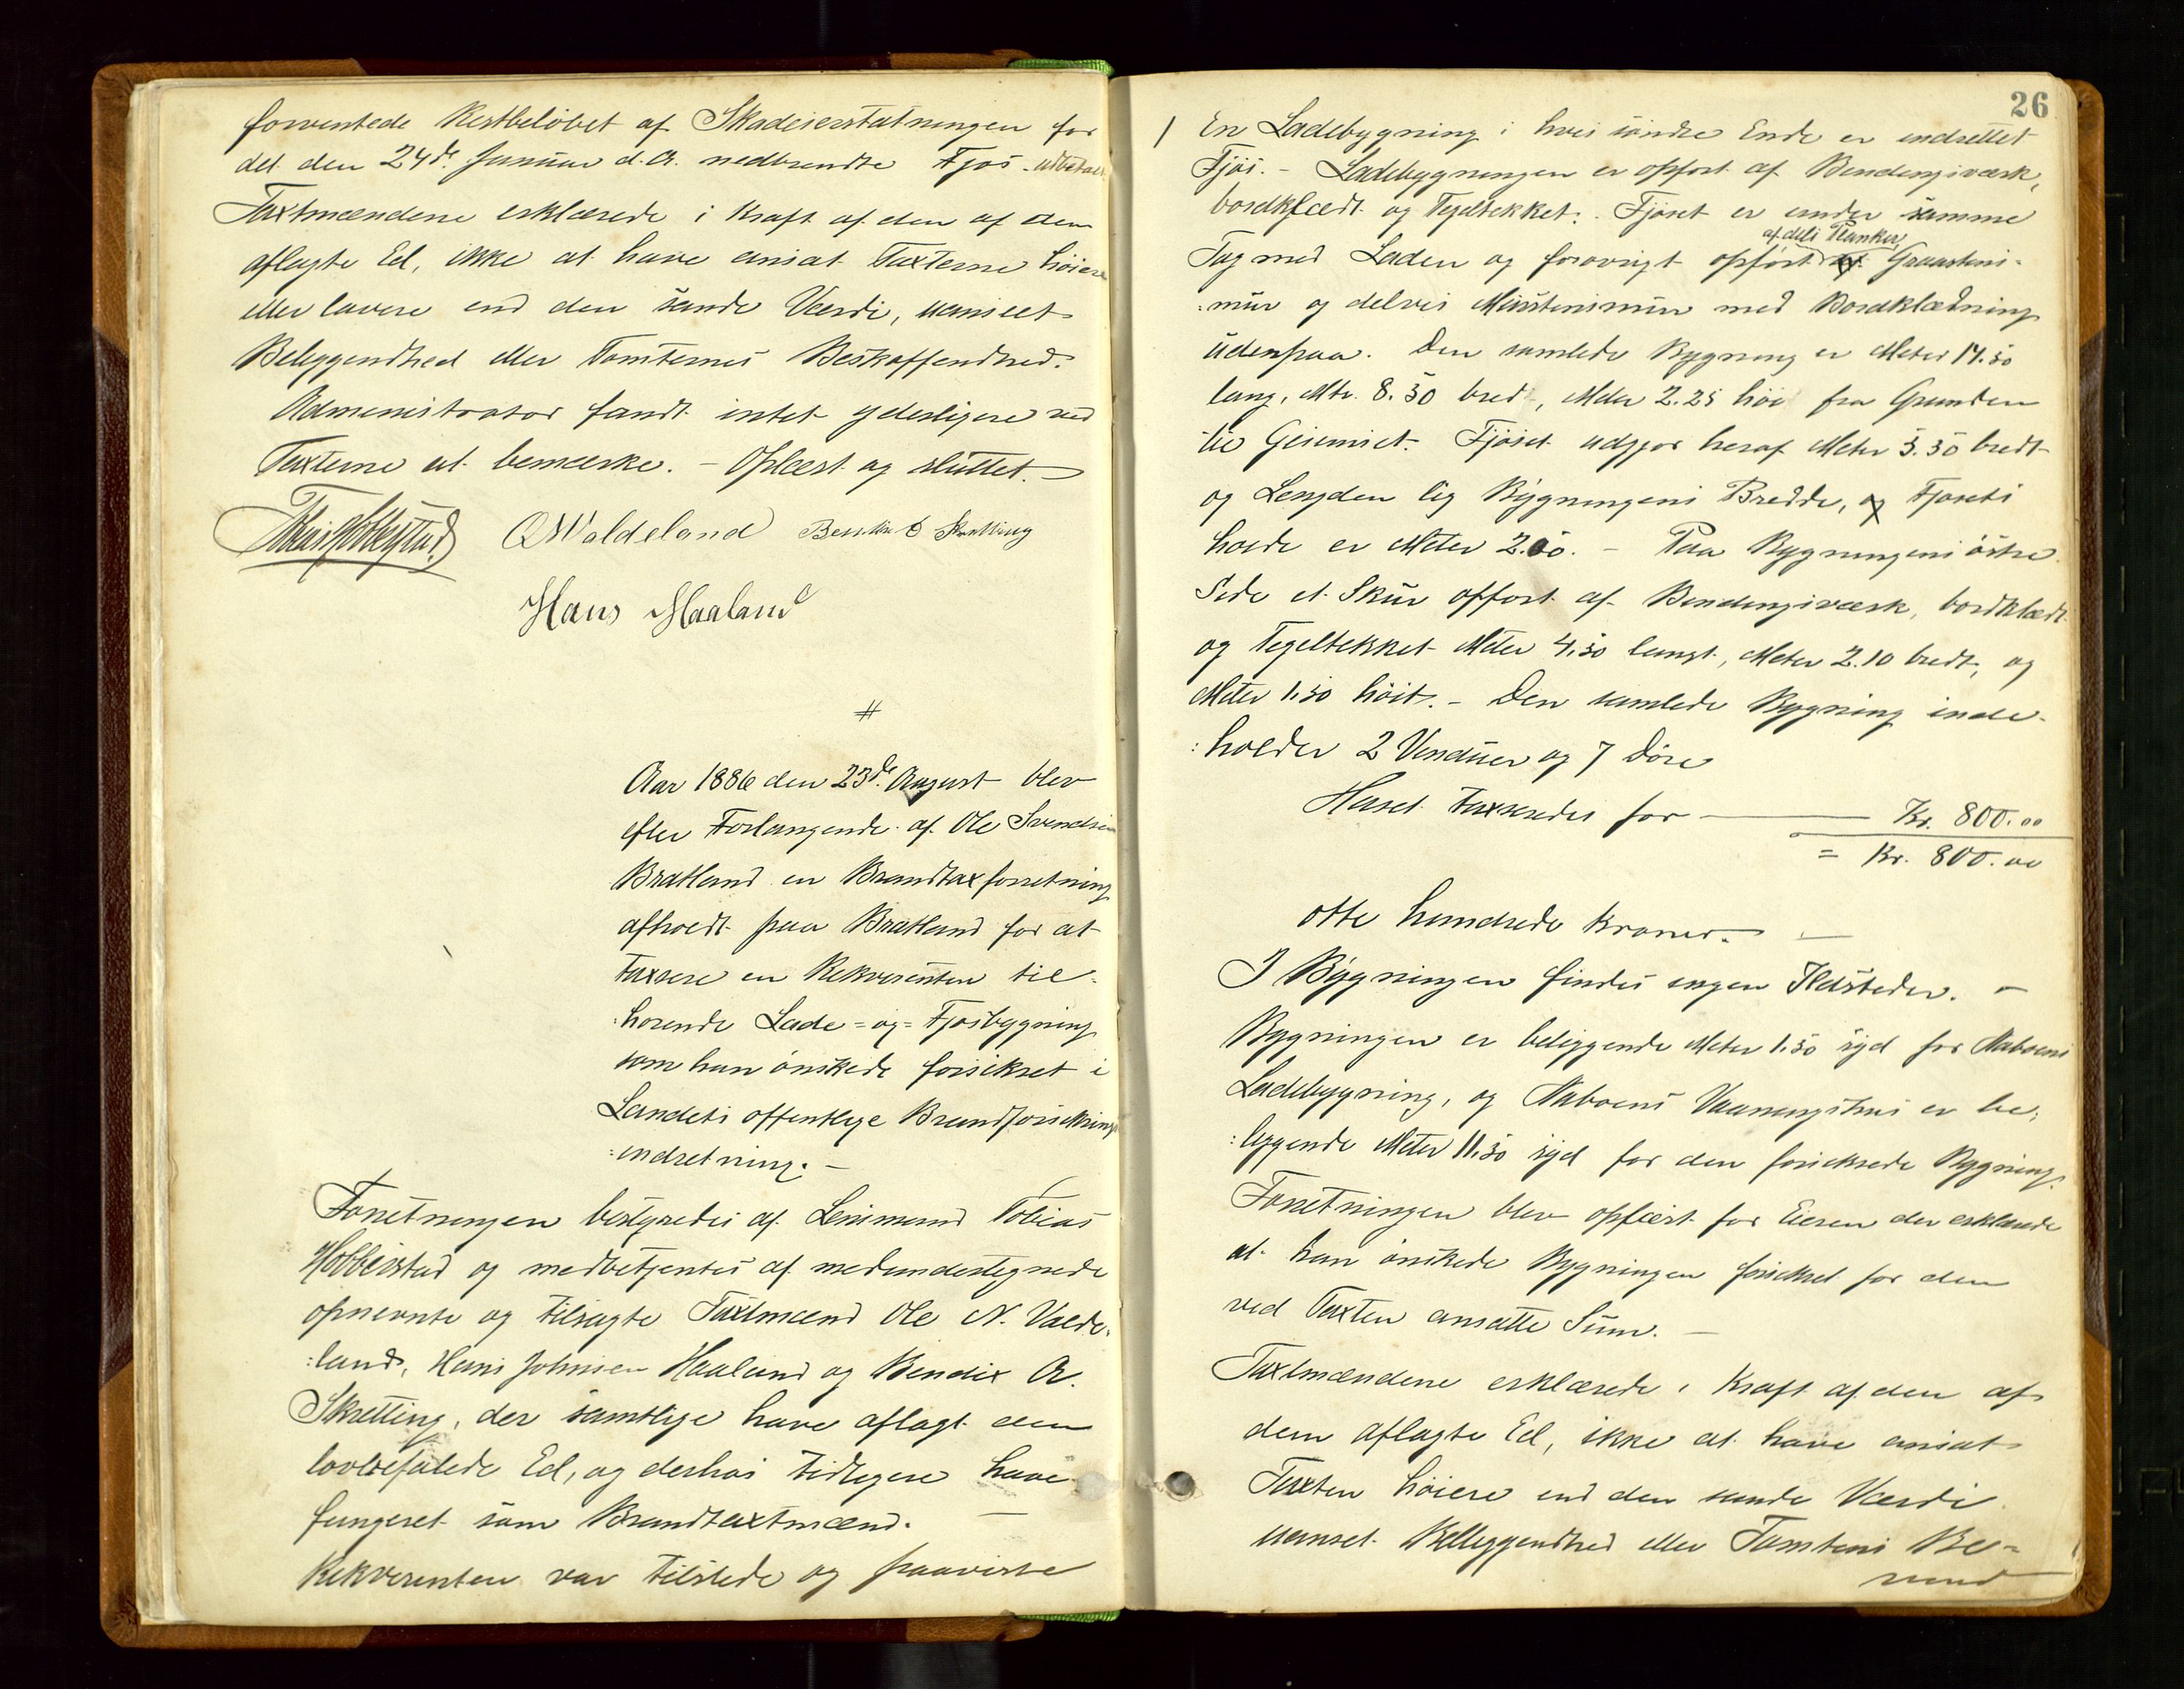 forventede Restbeløbet af Skadeserstatningen for
det den 24de Januar d. A. nedbrendte Fjøs udbetalt
Taxtmændene erklærede i Kraft af den af dem
aflagte Ed, ikke at have ansat Taxterne høiere
eller lavere end den sande Værdi, uanseet
Beliggendhed eller Tomternes Beskaffendhed.
Administrator fandt intet yderligere ved
Taxterne at bemærke. - Oplæst og sluttet. -
OWaldeland Skretting
Hans Haaland
#
Aar 1886 den 23de August blev
efter Forlangende af Ole Svendsen
Bratland en Brandtaxforretning
afholdt paa Bratland for at
taxere en Rekvirenten til-
:hørende Lade=og=Fjøsbygning
som han ønskede forsikret i
Landets offentlige Brandforsikrings
:indretning. -
Forretningen bestyredes af Lensmand Tobias
Hobberstad og medbetjentes af medundertegnede
opnevnte og tilsagte Taxtmænd Ole N. Valde-
:land, Hans Johnsen Haaland og Bendix A.
Skretting, der samtlige have aflagt den
lovbefalede Ed, og derhos tidligere have
fungeret som Brandtaxtmænd. -
Rekvirenten var tilstede og paaviste
26
1 En Ladebygning i hvis søndre Ende er indrettet
Fjøs. - Ladebygningen er opført af Bindingsværk,
bordklædt og Tegeltekket. Fjøset er under samme
af dels Planker,
Tag med Laden og forøvrigt opført Graastens-
:mur og delvis Murstensmur med Bordklædning
udenpaa. Den samlede Bygning er Meter 14.50
lang, Mtr. 8.50 bred, Meter 2.25 høi fra Grunden
til Gesimset. Fjøset udgjør heraf Meter 5.50 bredt
og Lengden lig Bygningens Bredde, og Fjøsets
høide er Meter 2.00. - Paa Bygningens østre
Side et Skur opført af Bindingsværk, bordklædt
og Tegeltekket Meter 4.50 langt, Meter 2.10 bredt, og
Meter 1.50 høit. - Den samlede Bygning inde-
:holder 2 Vinduer og 7 Døre
Huset taxeredes for - Kr. 800.00
= Kr. 800.00
otte hundrede Kroner. -
I Bygningen findes ingen Ildsteder. -
Bygningen er beliggende Meter 1.50 syd for Naboens
Ladebygning, og Naboens Vaaningshus er be-
:liggende Meter 11.50 syd for den forsikrede Bygning.
Forretningen blev oplæst for Eieren der erklærede
at han ønskede Bygningen forsikret for den
ved Taxten ansatte Sum. -
Taxtmændene erklærede i Kraft af den af
dem aflagte Ed, ikke at have ansat
Taxten høiere end den sande Værdi
uanset Beliggendhed eller Tomtens Be-